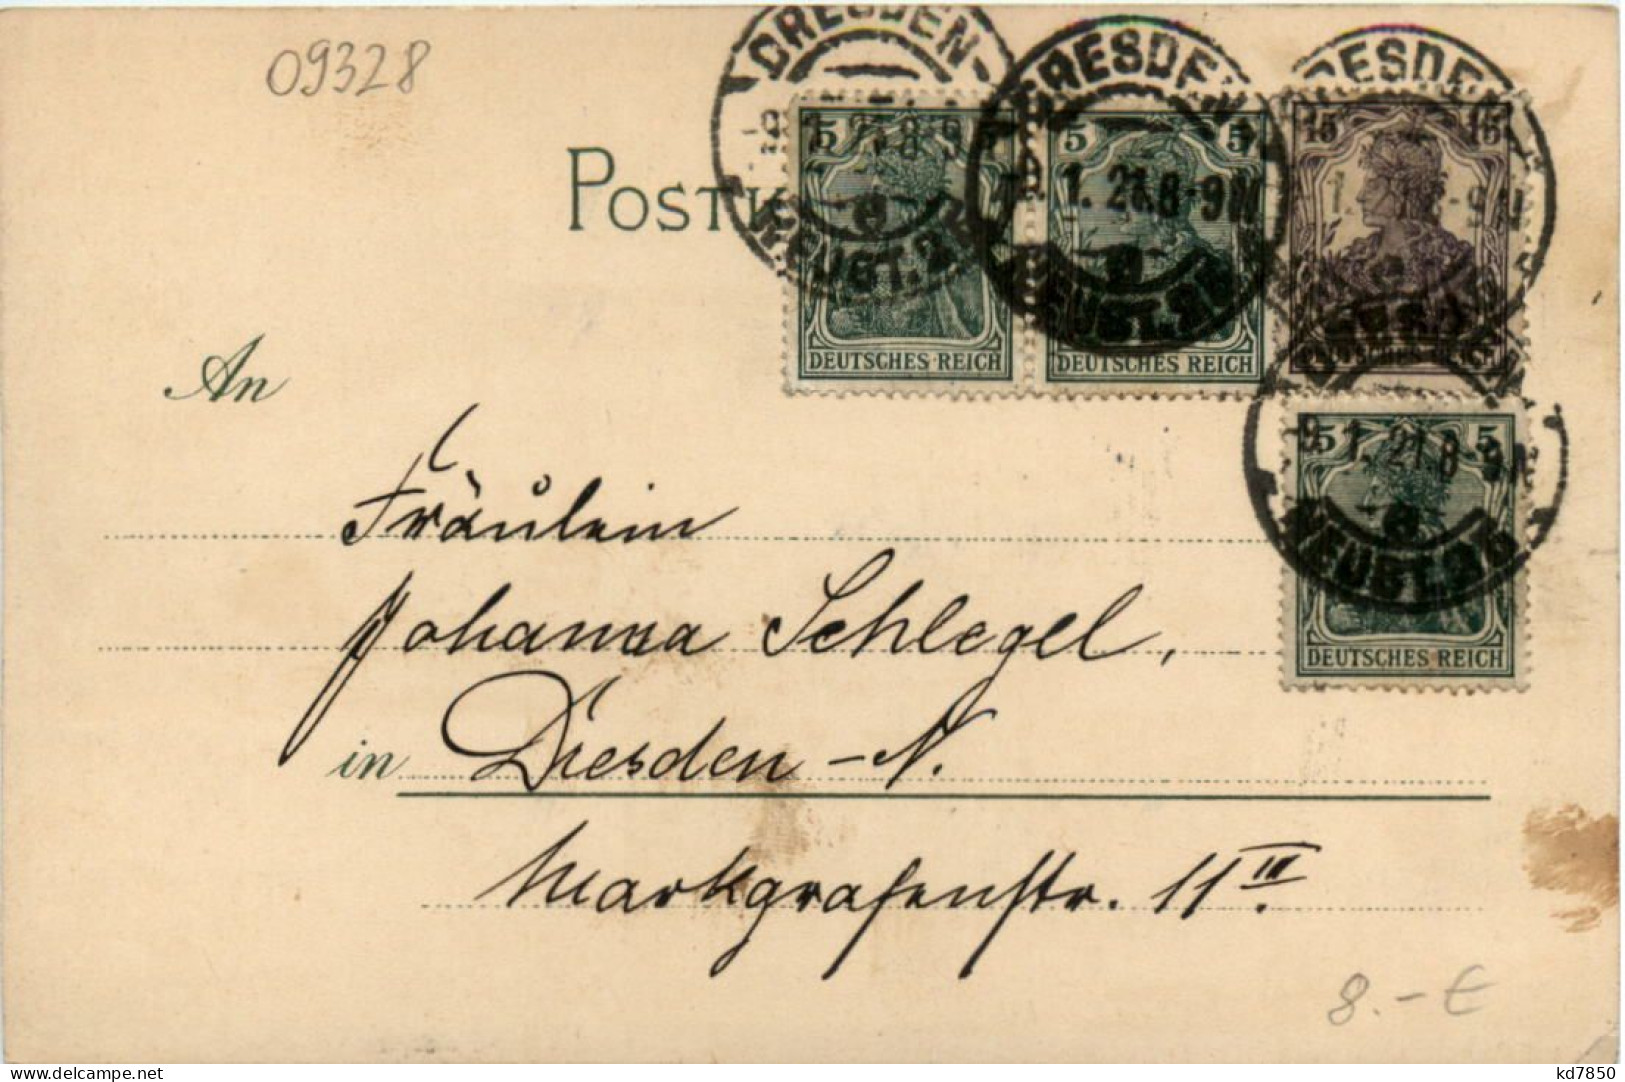 09328
DRESDEN-
DRESDEN
DRESDEN
POSTK
5 5
5 5
15 15
1.21.8-9N
NEUST.
DEUTSCHES REICH
DEUTSCHES REICH
An
5 5
-9.1.21 8-9N
NEUST.
DEUTSCHES REICH
Fräulein
Johanna Schlegel,
in Dresden-N.
Markgrafenstr. 11 III.
8.-€
delcampe.net
kd7850